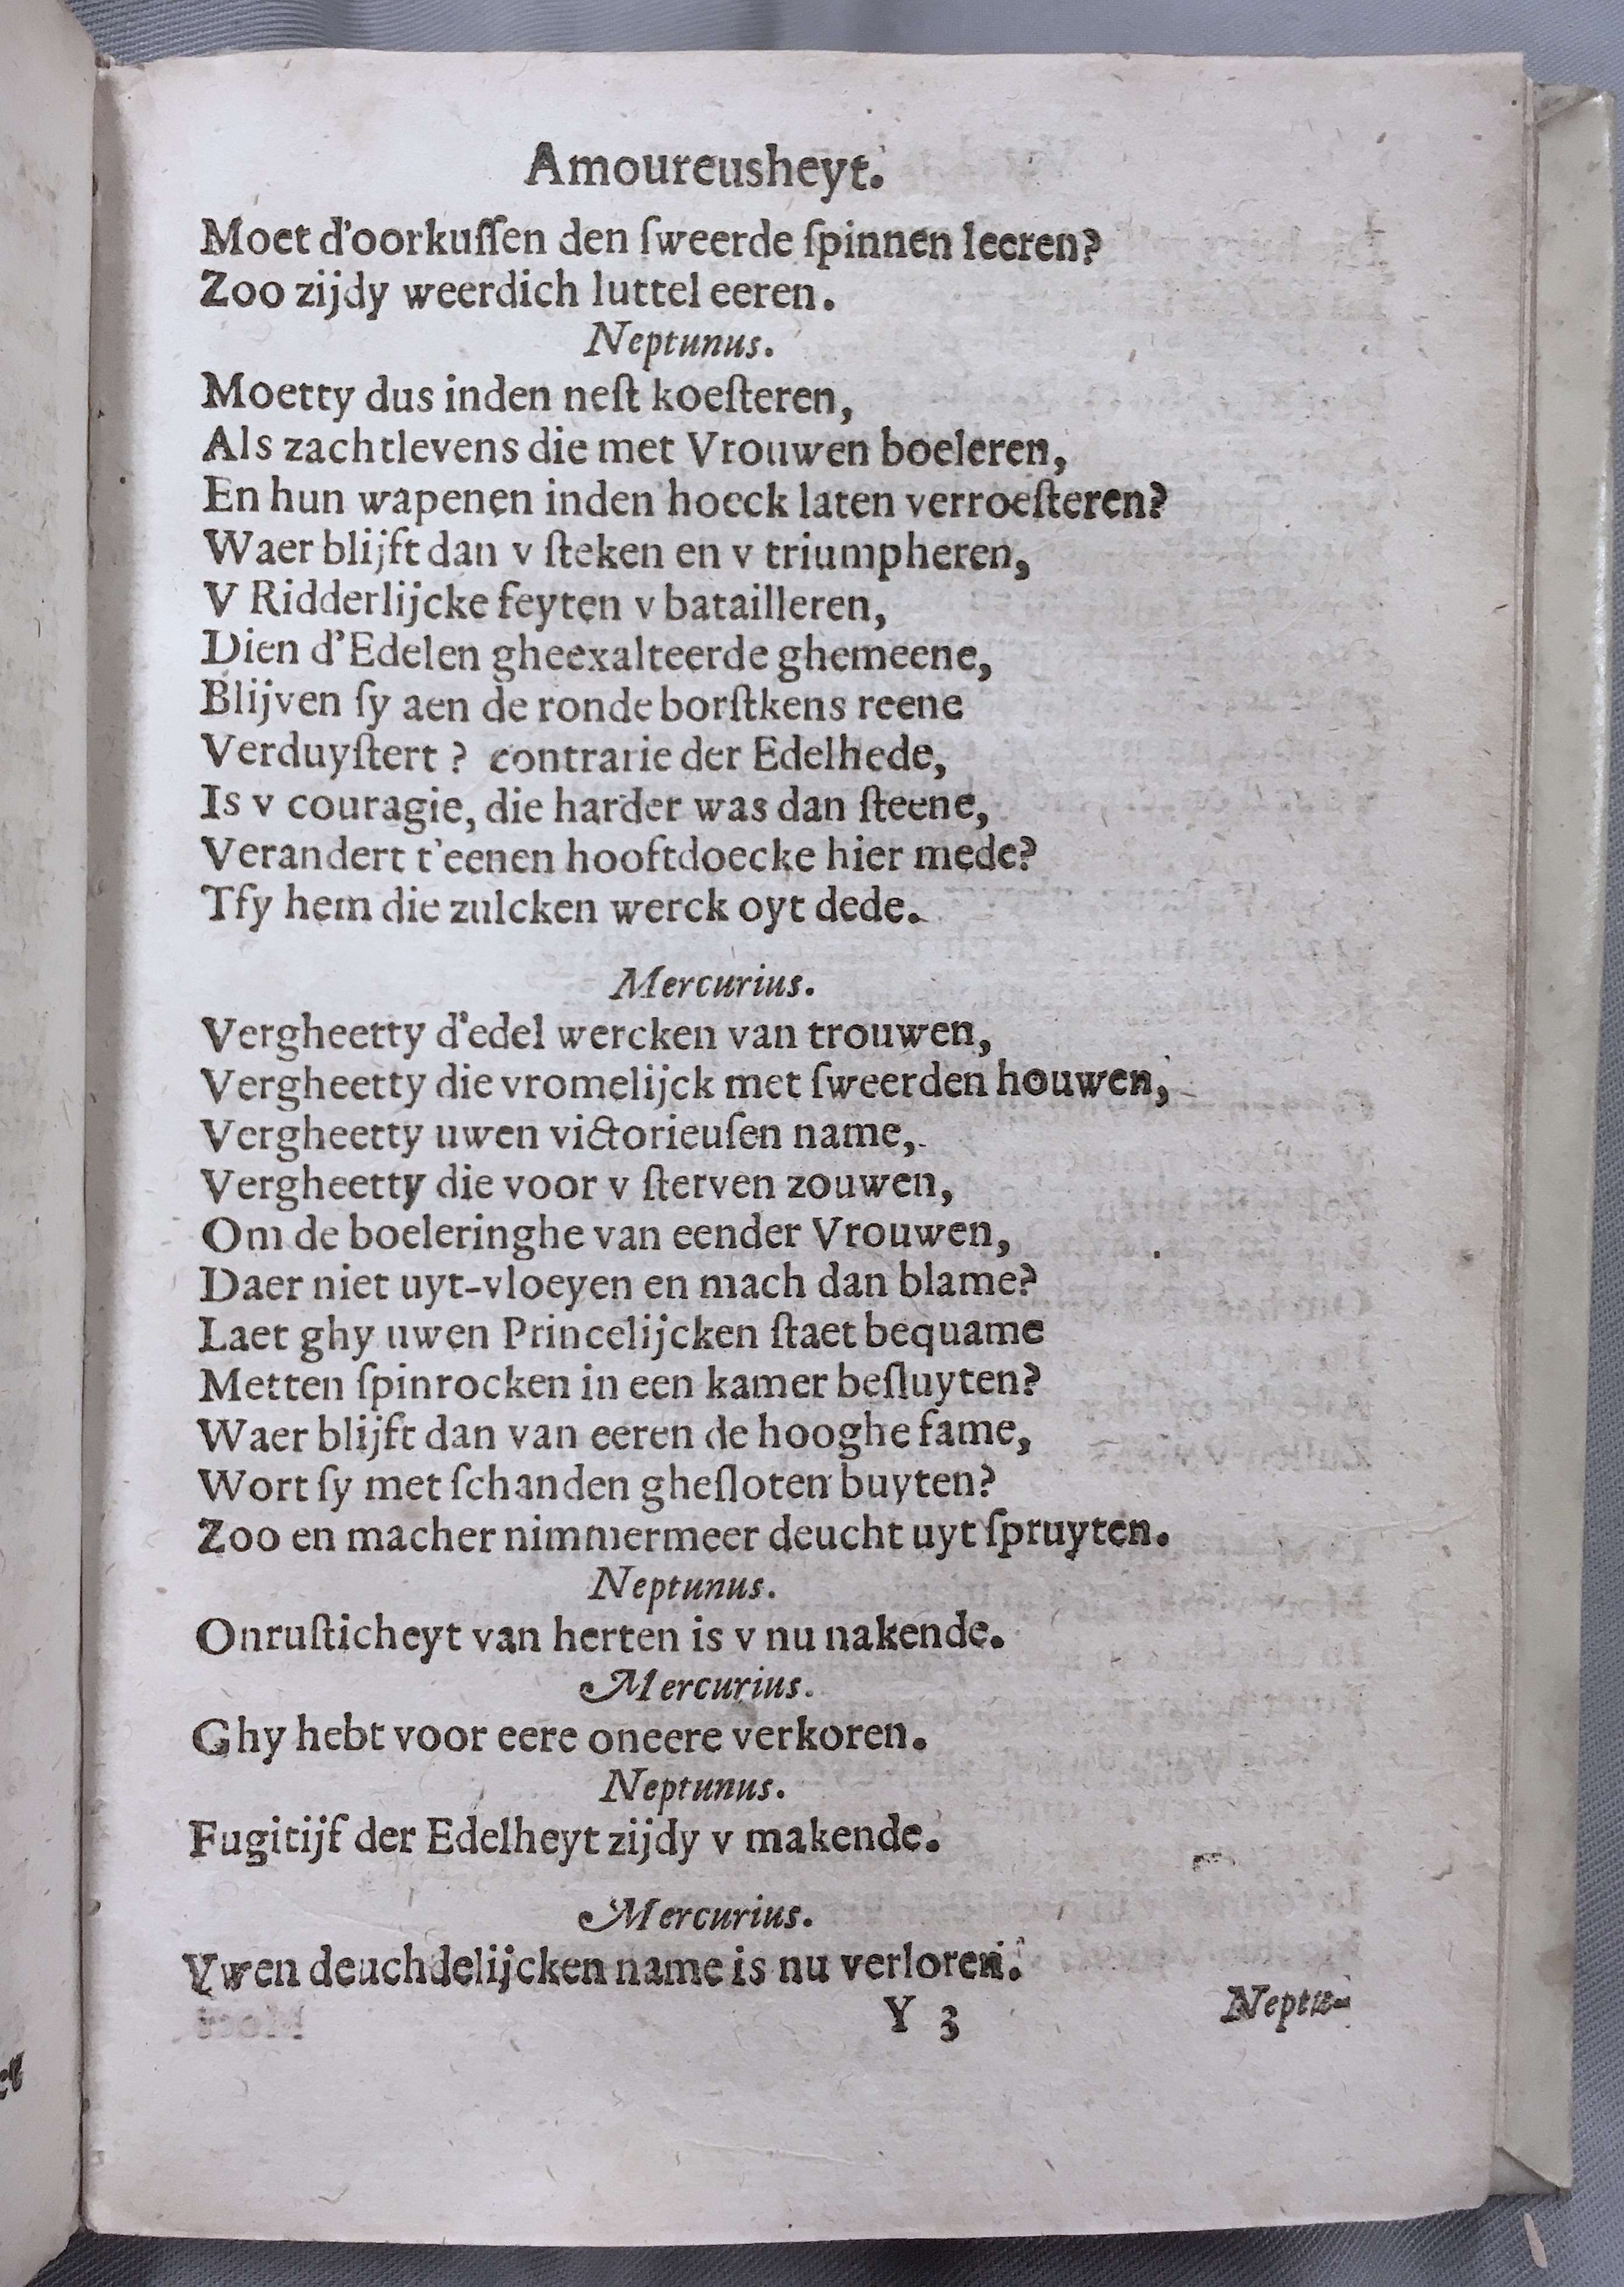 Amoureusheyt.
Moet d'oorkuſſen den ſweerde ſpinnen leeren?
Zoo zijdy weerdich luttel eeren.
Neptunus.
Moetty dus inden neſt koeſteren,
Als zachtlevens die met Vrouwen boeleren,
En hun wapenen inden hoeck laten verroeſteren?
Waer blijft dan v ſteken en v triumpheren,
V Ridderlijcke feyten v batailleren,
Dien d'Edelen gheexalteerde ghemeene,
Blijven ſy aen de ronde borſtkens reene
Verduyſtert? contrarie der Edelhede,
Is v couragie, die harder was dan ſteene,
Verandert t'eenen hooftdoecke hier mede?
Tfy hem die zulcken werck oyt dede.
Mercurius.
Vergheetty d'edel wercken van trouwen,
Vergheetty die vromelijck met ſweerden houwen,
Vergheetty uwen victorieuſen name,
Vergheetty die voor v ſterven zouwen,
Om de boeleringhe van eender Vrouwen,
Daer niet uyt-vloeyen en mach dan blame?
Laet ghy uwen Princelijcken ſtaet bequame
Metten ſpinrocken in een kamer beſluyten?
Waer blijft dan van eeren de hooghe fame,
Wort ſy met ſchanden gheſloten buyten?
Zoo en macher nimmermeer deucht uyt ſpruyten.
Neptunus.
Onruſticheyt van herten is v nu nakende.
Mercurius.
Ghy hebt voor eere oneere verkoren.
Neptunus.
Fugitijf der Edelheyt zijdy v makende.
Mercurius.
Vwen deuchdelijcken name is nu verloren.
Y 3
Neptu-